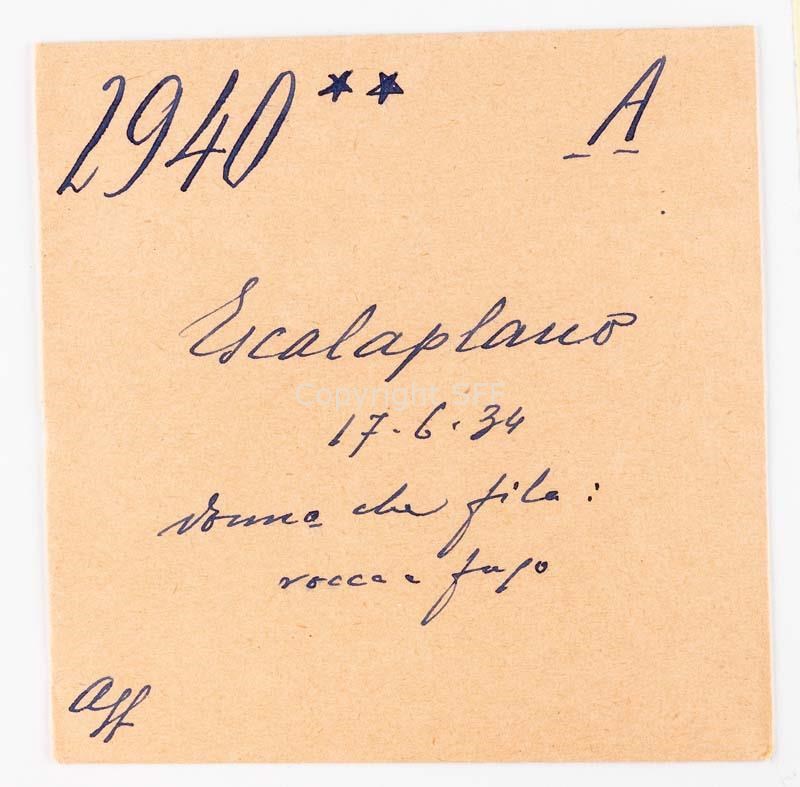 2940 ** A
Escalaplano
Copyright SFF
17.6.34
donna che fila:
rocca e fuso
Aff